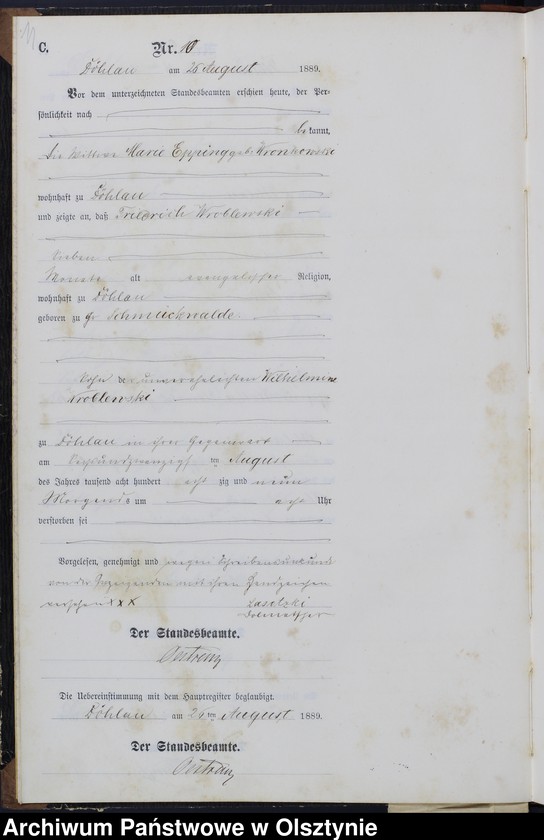 C. Nr. 10
Döhlau am 26 August 1889.
Vor dem unterzeichneten Standesbeamten erschien heute, der Per-
sönlichkeit nach
bekannt,
die Wittwe Marie Epping geb. Wronkowski
wohnhaft zu Döhlau
und zeigte an, daß Friedrich Wroblewski
sieben
Monate alt evangelischer Religion,
wohnhaft zu Döhlau
geboren zu Gr Schmückwalde.
Sohn der unverehelichten Wilhelmine
Wroblewski
zu Döhlau in ihrer Gegenwart
am ten August
des Jahres tausend acht hundert acht zig und neun
Morgens um acht Uhr
verstorben sei
Vorgelesen, genehmigt und wegen Schreibensunkunde
von der Anzeigenden mit ihren Handzeichen
versehen XXX
Dolmetscher
Der Standesbeamte.
Die Uebereinstimmung mit dem Hauptregister beglaubigt.
Döhlau am 26 ten August 1889.
Der Standesbeamte.
Archiwum Państwowe w Olsztynie